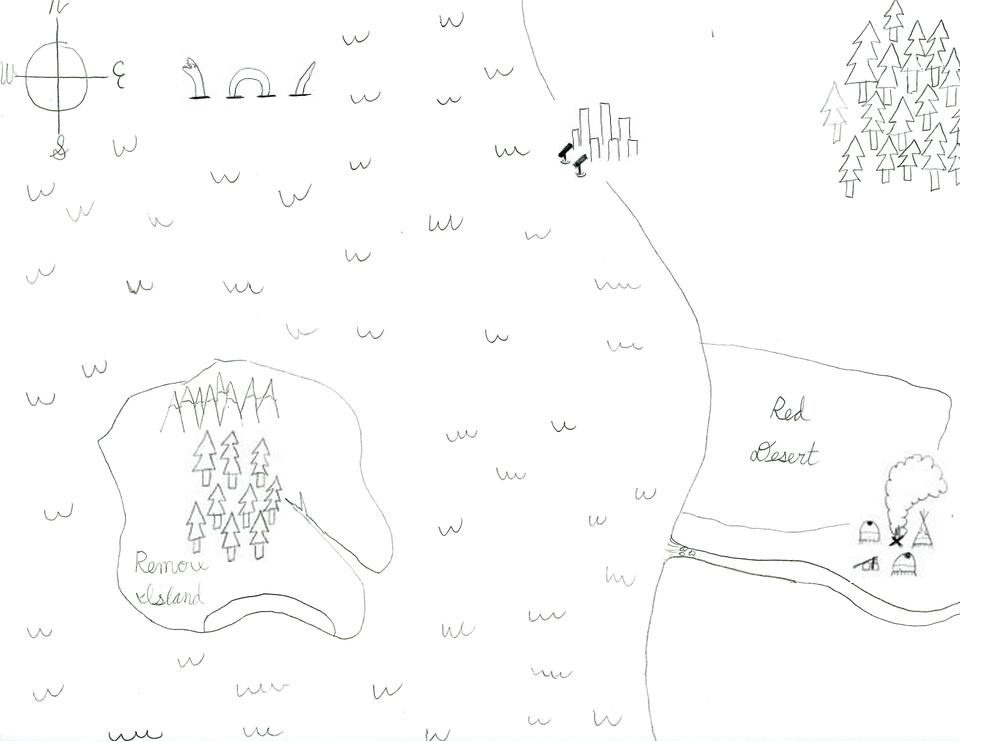 N
W
E
S
Red
Desert
Remove
Island